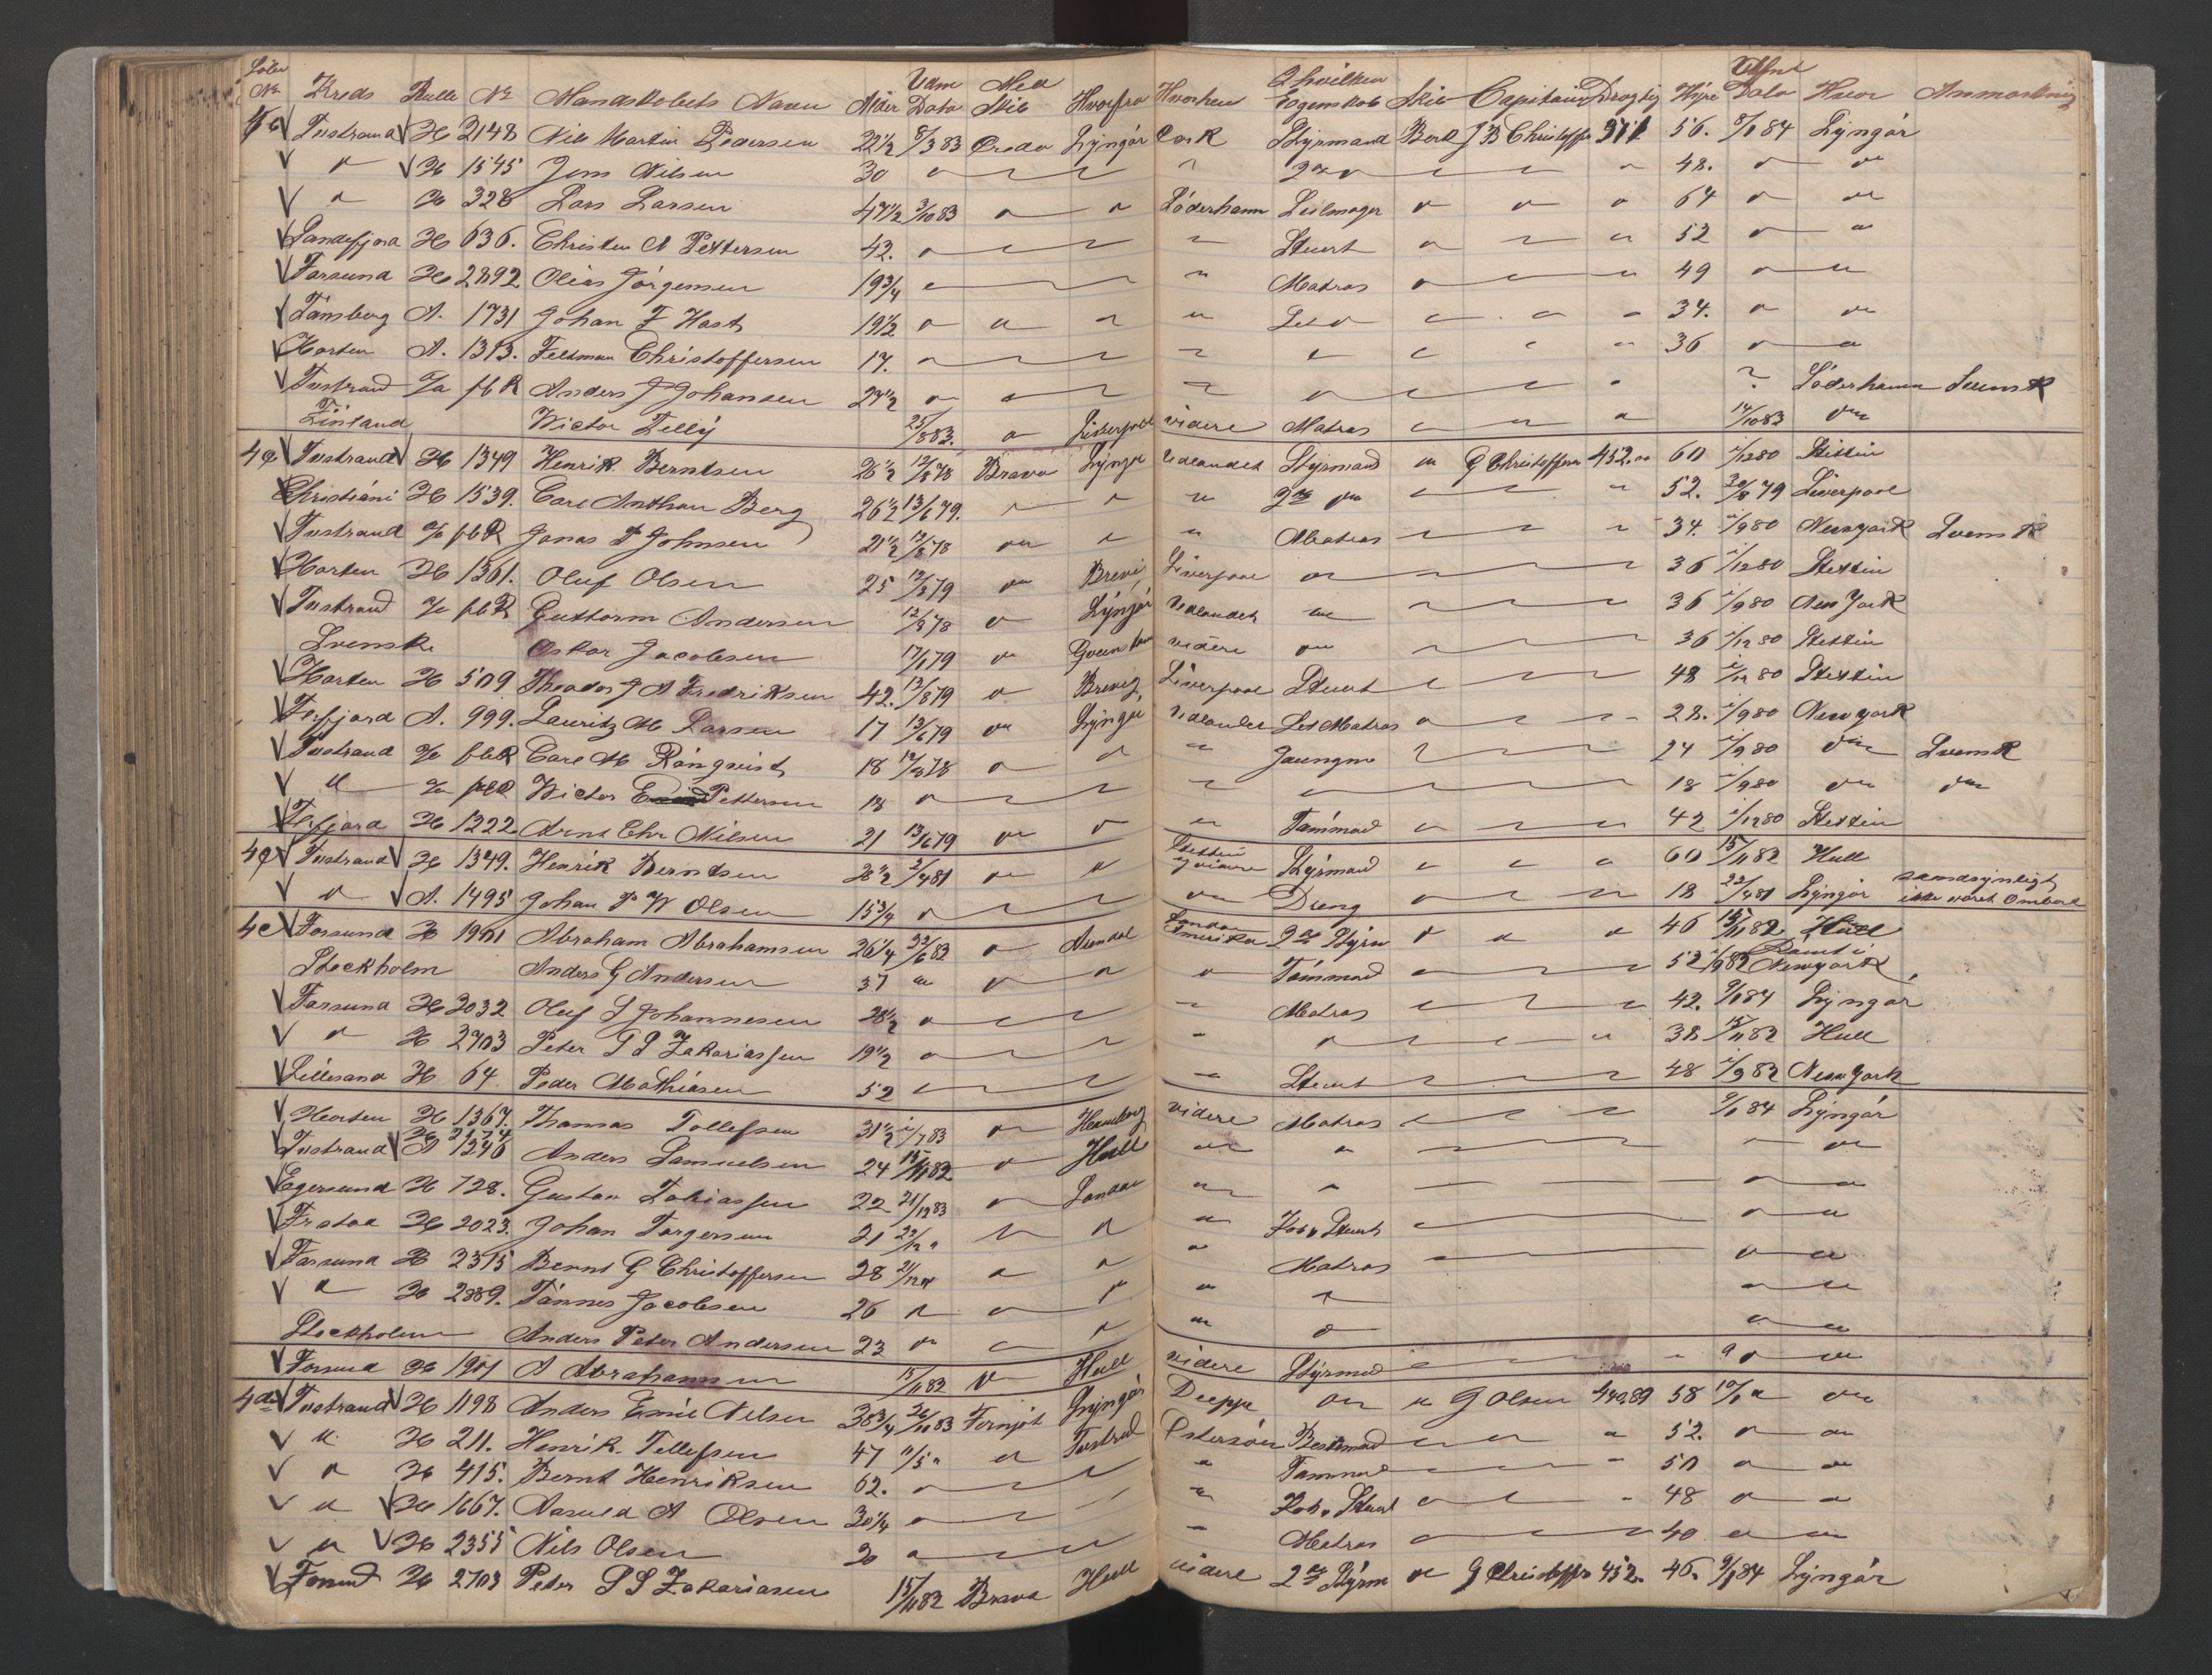 Løbe No Kreds Rulle No Mandskabets Navn Alder Udm Dato Med Skib Hvorfra Hvorhen I hvilken Egenskab Skib Capitain Drægtig Hyre Afmt Dato Hvor Anmærkning
Tvstrand H 2148 Nils Martin Pedersen 22½ 8/3 83 Lyngør Cork Styrmand Bark J B Christoffr 56. 9/1 84 Lyngør
" H 1545 Jens Nilsen 30 " 2den " 48. " "
" H 328 Lars Larsen 47½ 3/10 83 " " Söderhamn Seilmager " " " 64 " "
Sandefjord H 636. Christen A Pettersen 42. " " Stuert " 52 " "
Farsund H 2892. Olias Jörgensen 19¾ " " Matros " 49 " "
Tönsberg A. 1731 Johan F Hast 19½ " " " " Let " " " 34. " "
Horten A. 1313. Feldman Christoffersen 17. " " " " 36 " "
Tvstrand fbR Anders J Johansen 27½ " " " " " Söderhamn Svensk
Finland Victor Tilly 25/8 83. " Liverpool videre Matros " " 14/10 83 "
Tvstrand H 1349 Henrik Berntsen 26½ 12/8 78 Bravo Lyngør Udlandet Styrmand " G Christoffersen 452. 60 1/12 80 Stettin
Christiani H 1539. Carl Anthon Berg 26½ 13/6 79. " " " 2den " " 52. 30/8 79 Liverpool
Tvstrand fbR Jonas P Johnsen 21½ 12/8 78 " " " Matros " 34. 1/9 80 Newyork Svensk
Horten H 1361. Oluf Olsen 25 12/8 79 " Brevig Liverpool " " 36 1/12 80 Stettin
Tvstrand fbR Guttorm Andersen 12/8 78 " Lyngør Udlandet " " 36 1/9 80 New York
Svensk Oskar Jacobsen 17/1 79 " videre " " 36 1/12 80 Stettin
Horten H 509 Theodor J A Fredriksen 42. 12/8 79 " Brevig, Liverpool Stuert " 48 1/12 80 Stettin
A. 999. Lauritz M Larsen 17 13/6 79 " Lyngør Udlandet Let Matros " 28. 1/9 80 Newyork
Tvstrand fbR Carl M Rönqvist 18 12/8 78 " " " Jungm " 24 1/9 80 " Svensk
" fbR Victor Pettersen 18 " " " 18 1/9 80 " "
H 1222. Arnt Chr Nilsen 21 13/6 79 " " " Tömmrmd " 42 1/12 80 Stettin
Tvstrand H 1349. Henrik Berntsen 28½ 2/4 81 " " Stettin Styrmand " " " 60 15/11 82 Hull
" A. 1495 Johan P W Olsen 15¾ " " Dreng " 18 22/4 81 Lyngør sandsynligt ikke været Ombord
Farsund H 1901 Abraham Abrahamsen 26¼ 22/6 82 " Arendal London Amerika 2den Styrm " " " 46 15/11 82 Hull
Stockholm Anders G Andersen 37 " " " " Tömmrmd " 52 1/9 82 Römt i Newyork
Farsund H 3032 Oluf S Johannesen 28½ " " Matros " 42. 9/1 84 Lyngør
" H 2703 Peter G S Zakariassen 19½ " " " " 38 15/11 82 Hull
Lillesand H 64. Peder Mathiasen 52 " " Stuert " 48 1/9 82 New York
Horten H 1367. Thomas Tollefsen 31½ 1/7 83 " Hamburg videre Matros " 9/1 84 Lyngør
Tvstrand A 1246 Anders Samuelsen 24 15/11 82. " Hull " " " " "
Egersund H 728. Gustav Tobiassen 22 21/12 83 " London " " " " "
Frstad H 2023. Johan Torgersen 21 22/12 " " " " Kok o Stuert " " "
Farsund H 2315 Bernt G Christoffersen 28 21/12 " " " " Matros " " "
" H 2889. Tönnes Jacobsen 26 " " " " " " "
Stockholm Anders Peter Andersen 23 " " " " " " "
Farsund H 1901 A Abrahamsen 15/11 82 " Hull videre Styrmd " " " "
Tvstrand H 1198 Anders Emil Nilsen 38¾ 26/10 83 Fornjot Lyngør Dieppe " " G Olsen 440,89 58 10/1 " "
" H 211. Henrik Tellefsen 47 11/5 " " Tvstrand Östersöen Bestmand " " " 52. " "
" H 415. Bernt Henriksen 62. " " Tömmrmd " " 50 " "
" H 1667. Aasuld A Olsen 30¼ " " Kok o Stuert " " 48 " "
" H 2355 Nils Olsen 20 " " Matros " 40 " "
Farsund H 2703 Peter S S Zakariasen 15/11 82 Bravo Hull videre 2den Styrm " G Christoffr 452. 46. 9/1 84 Lyngør